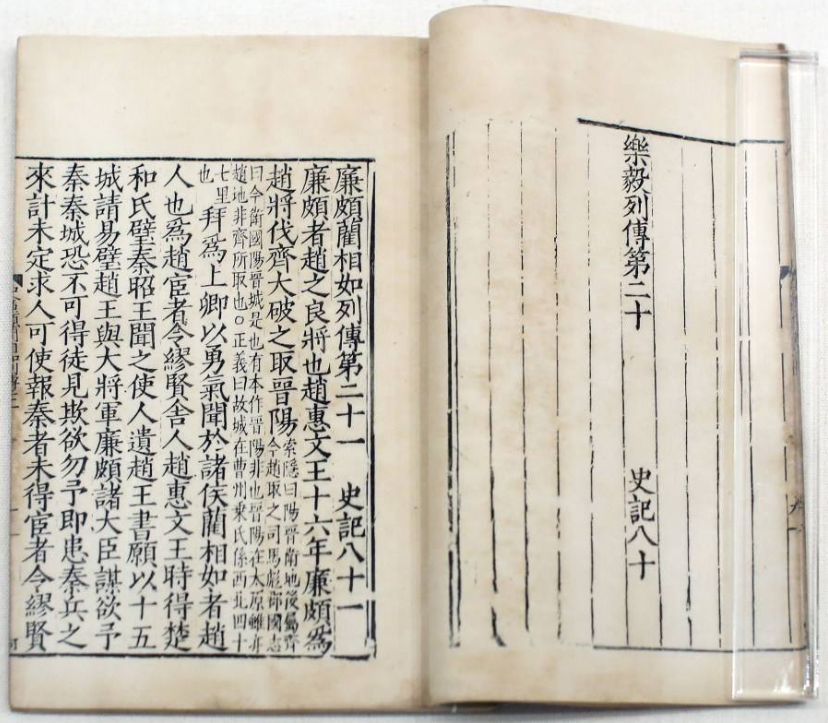 樂毅列傳第二十 史記八十
廉頗藺相如列傳第二十一 史記八十一
廉頗者趙之良將也趙惠文王十六年廉頗爲
趙將伐齊大破之取晉陽索隱曰陽晉衛地後屬齊今趙取之司馬彪郡國志
曰今衛國陽晉城是也有本作晉陽非也晉陽在太原雖亦
趙地非齊所取也○正義曰故城在曹州乗氏係西北四十
七里也拜爲上卿以勇氣聞於諸侯藺相如者趙
人也爲趙宦者令繆賢舍人趙惠文王時得楚
和氏璧秦昭王聞之使人遺趙王書願以十五
城請易璧趙王與大將軍廉頗諸大臣謀欲予
秦秦城恐不可得徒見欺欲勿予即患秦兵之
來計未定求人可使報秦者未得宦者令繆賢